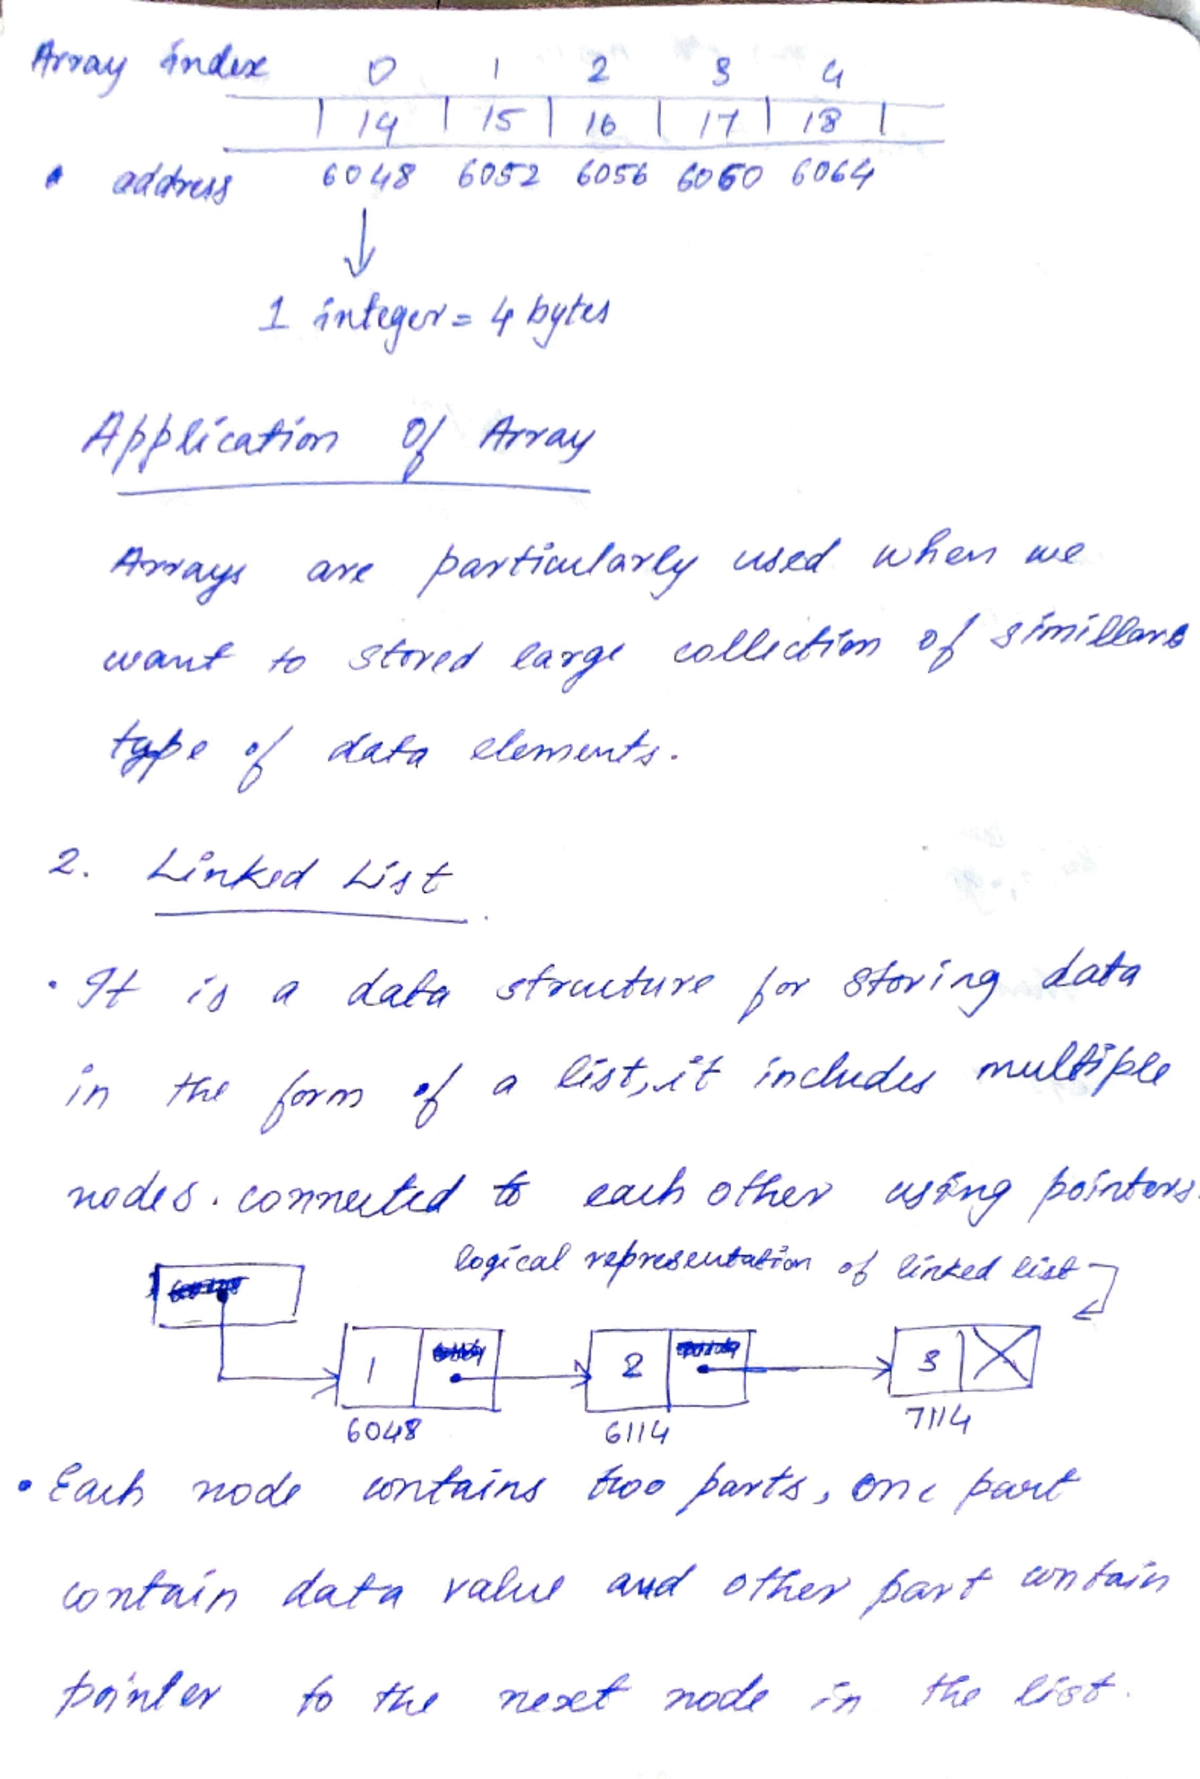 Array index 0 1 2 3 4
14 15 16 17 18
• address 6048 6052 6056 6060 6064
1 integer = 4 bytes
Application Of Array
Arrays are particularly used when we
want to stored large collection of simillare
type of data elements.
2. Linked List
• It is a data structure for storing data
in the form of a list, it includes multiple
nodes. connected to each other using pointers.
logical representation of linked list
1 2 3
6048 6114 7114
• Each node contains two parts, one part
contain data value and other part contain
pointer to the next node in the list.